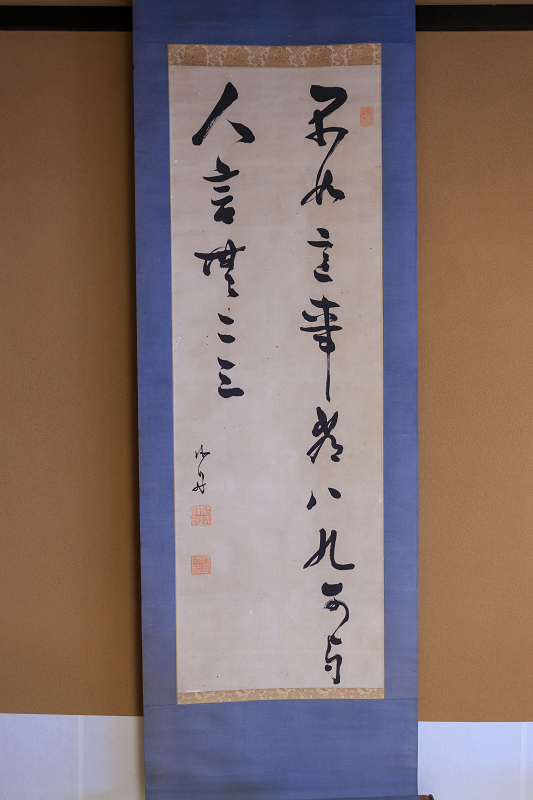 不如意事常八九可与
人言無二三
海舟